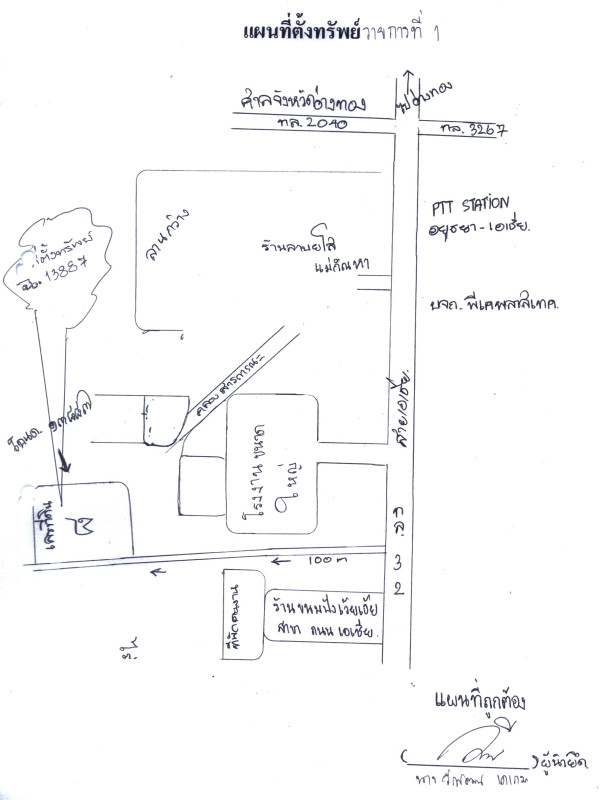 แผนที่ตั้งทรัพย์รายการที่ 1
ไปอ่างทอง
ศาลจังหวัดอ่างทอง
ทล. 2040
ทล. 3267
ลานกว้าง
PTT STATION
อยุธยา - เอเชีย.
ที่ตั้งทรัพย์
13887
ร้านลาบยโส
แม่กัณหา
บจก. พีเคพลาสเทค.
คลองสาธารณะ
สายเอเชีย.
โรงงานขนาด
ใหญ่
ทล
3
2
100 m
ที่พักคนงาน
ร้านขนมปังเวียเจีย
สาขา ถนน เอเชีย.
แผนที่ถูกต้อง
( ) ผู้นำยึด